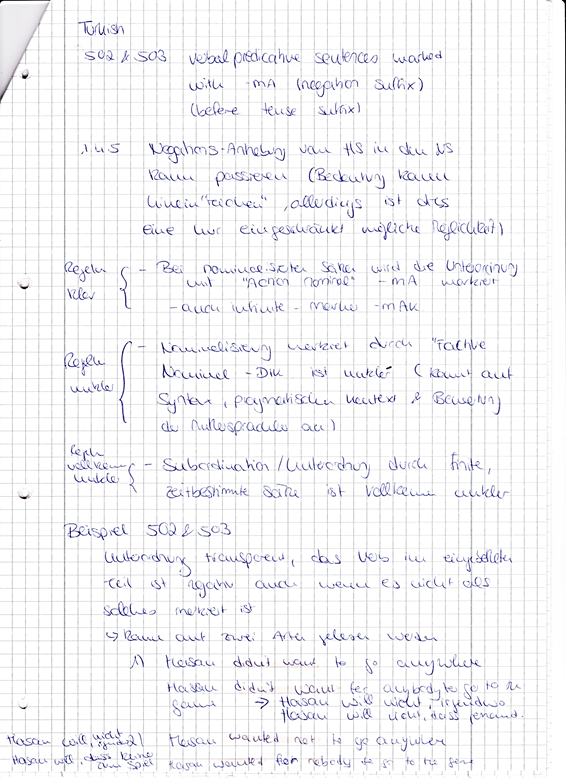 Turkish
502 & 503 verbal predicative sentences marked
with -mA (negation suffix)
(before tense suffix)
145 Negations-Anhebung vom HS in den NS
kann passieren (Bedeutung kann
hinein "reichen", allerdings ist dies
eine nur eingeschränkt mögliche Möglichkeit)
Regeln klar
- Bei nominalisierter Sätzen wird die Unterordnung
mit "Action nominal" -mA markiert
- auch infinite - Marker -mAk
Regeln unklar
- Nominalisierung markiert durch "Factive
Nominal -DIK ist unklar (kommt auf
Syntax, pragmatischen Kontext & Bewertung
der Muttersprachler an)
Regeln vollkommen unklar
- Subordination / Unterordnung durch finite,
zeitbestimmte Sätze ist vollkommen unklar
Beispiel 502 & 503
Unterordnung transparent, das Verb im eingebetteten
Teil ist negativ auch wenn es nicht als
solches markiert ist
↳ Kann auf zwei Arten gelesen werden
1) Hasan didn't want to go anywhere
Hassan didn't want for anybody to go to the
game → Hasan will nicht, irgendwo
Hasan will nicht, dass jemand.
2) Hasan wanted not to go anywhere
Hasan will, nicht
Hasan wanted for nobody to go to the game
Hasan will, dass keiner
zum Spiel